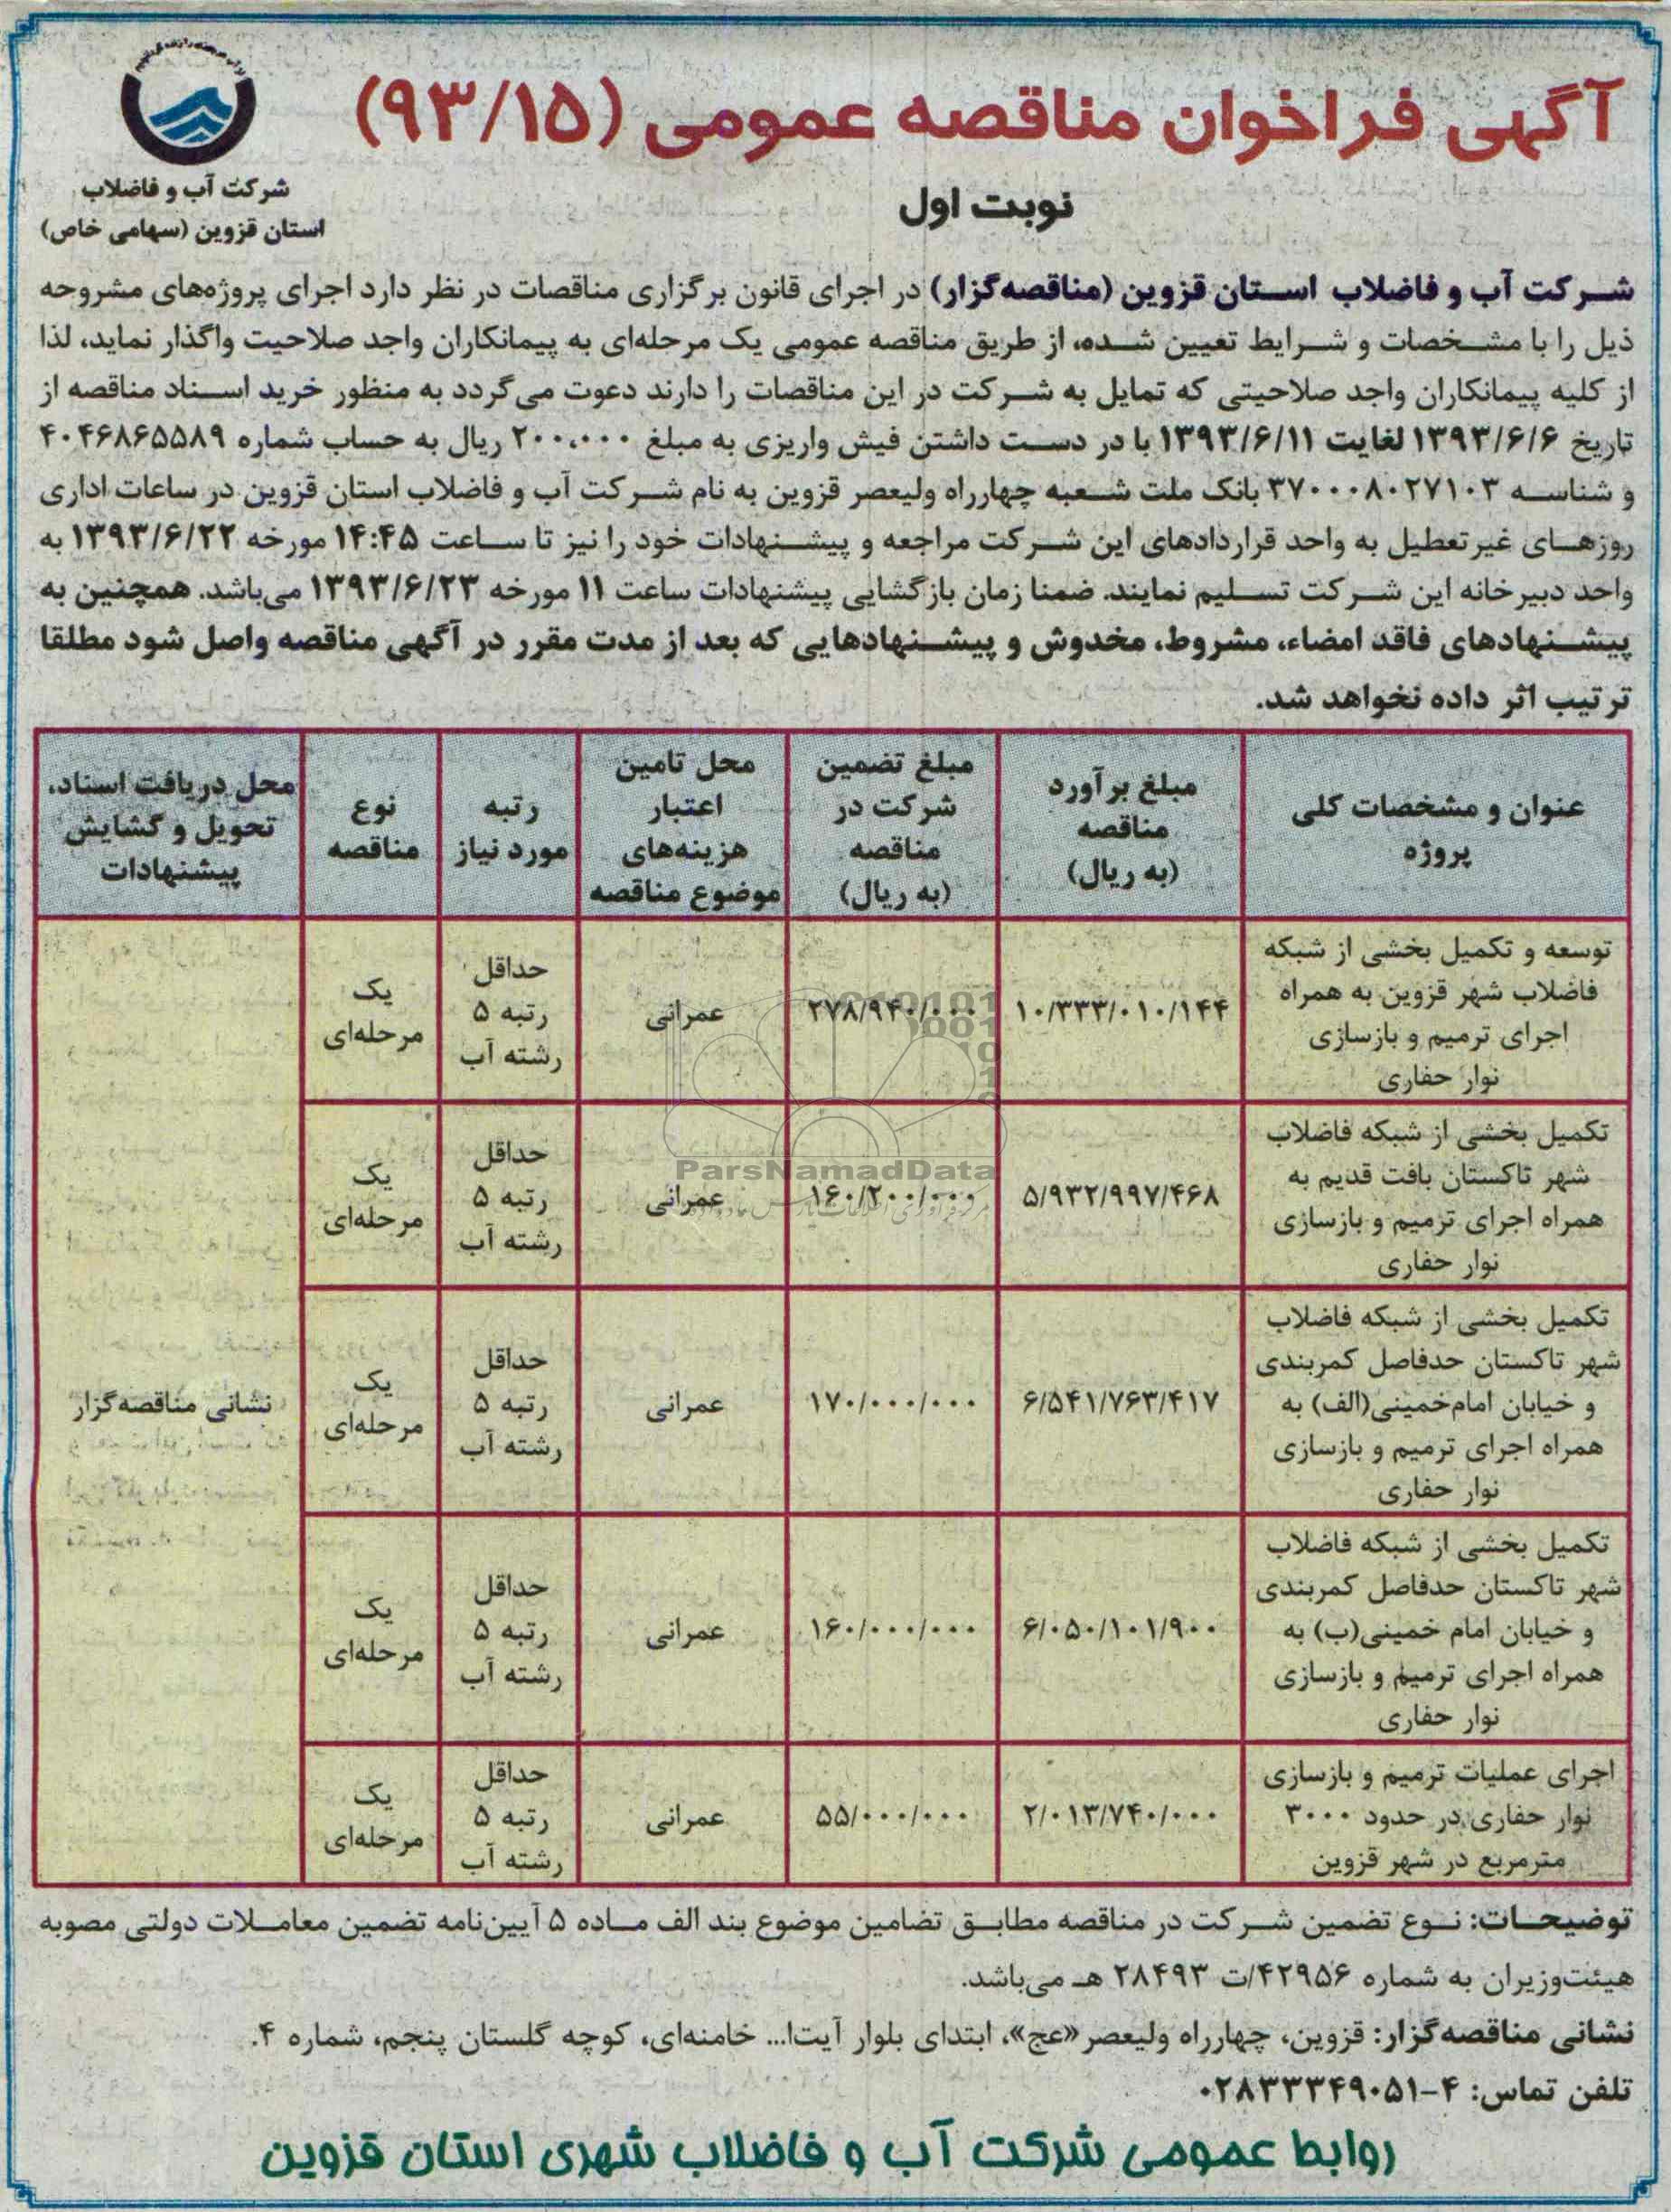 آگهی فراخوان مناقصه عمومی (۹۳/۱۵)
نوبت اول
شرکت آب و فاضلاب
استان قزوین (سهامی خاص)
شرکت آب و فاضلاب استان قزوین (مناقصه‌گزار) در اجرای قانون برگزاری مناقصات در نظر دارد اجرای پروژه‌های مشروحه
ذیل را با مشخصات و شرایط تعیین شده، از طریق مناقصه عمومی یک مرحله‌ای به پیمانکاران واجد صلاحیت واگذار نماید، لذا
از کلیه پیمانکاران واجد صلاحیتی که تمایل به شرکت در این مناقصات را دارند دعوت می‌گردد به منظور خرید اسناد مناقصه از
تاریخ ۱۳۹۳/۶/۶ لغایت ۱۳۹۳/۶/۱۱ با در دست داشتن فیش واریزی به مبلغ ۲۰۰،۰۰۰ ریال به حساب شماره ۴۰۴۶۸۶۵۵۸۹
و شناسه ۳۷۰۰۰۸۰۲۷۱۰۳ بانک ملت شعبه چهارراه ولیعصر قزوین به نام شرکت آب و فاضلاب استان قزوین در ساعات اداری
روزهای غیرتعطیل به واحد قراردادهای این شرکت مراجعه و پیشنهادات خود را نیز تا ساعت ۱۴:۴۵ مورخه ۱۳۹۳/۶/۲۲ به
واحد دبیرخانه این شرکت تسلیم نمایند. ضمنا زمان بازگشایی پیشنهادات ساعت ۱۱ مورخه ۱۳۹۳/۶/۲۳ می‌باشد. همچنین به
پیشنهادهای فاقد امضاء، مشروط، مخدوش و پیشنهادهایی که بعد از مدت مقرر در آگهی مناقصه واصل شود مطلقا
ترتیب اثر داده نخواهد شد.
عنوان و مشخصات کلی
پروژه
مبلغ برآورد
مناقصه
(به ریال)
مبلغ تضمین
شرکت در
مناقصه
(به ریال)
محل تامین
اعتبار
هزینه‌های
موضوع مناقصه
رتبه
مورد نیاز
نوع
مناقصه
محل دریافت اسناد،
تحویل و گشایش
پیشنهادات
توسعه و تکمیل بخشی از شبکه
فاضلاب شهر قزوین به همراه
اجرای ترمیم و بازسازی
نوار حفاری
۱۰/۳۳۳/۰۱۰/۱۴۴
۲۷۸/۹۴۰/۰۰۰
عمرانی
حداقل
رتبه ۵
رشته آب
یک
مرحله‌ای
تکمیل بخشی از شبکه فاضلاب
شهر تاکستان بافت قدیم به
همراه اجرای ترمیم و بازسازی
نوار حفاری
۵/۹۳۲/۹۹۷/۴۶۸
۱۶۰/۲۰۰/۰۰۰
عمرانی
حداقل
رتبه ۵
رشته آب
یک
مرحله‌ای
تکمیل بخشی از شبکه فاضلاب
شهر تاکستان حدفاصل کمربندی
و خیابان امام‌خمینی(الف) به
همراه اجرای ترمیم و بازسازی
نوار حفاری
۶/۵۴۱/۷۶۳/۴۱۷
۱۷۰/۰۰۰/۰۰۰
عمرانی
حداقل
رتبه ۵
رشته آب
یک
مرحله‌ای
نشانی مناقصه‌گزار
تکمیل بخشی از شبکه فاضلاب
شهر تاکستان حدفاصل کمربندی
و خیابان امام خمینی(ب) به
همراه اجرای ترمیم و بازسازی
نوار حفاری
۶/۰۵۰/۱۰۱/۹۰۰
۱۶۰/۰۰۰/۰۰۰
عمرانی
حداقل
رتبه ۵
رشته آب
یک
مرحله‌ای
اجرای عملیات ترمیم و بازسازی
نوار حفاری در حدود ۳۰۰۰
مترمربع در شهر قزوین
۲/۰۱۳/۷۴۰/۰۰۰
۵۵/۰۰۰/۰۰۰
عمرانی
حداقل
رتبه ۵
رشته آب
یک
مرحله‌ای
ParsNamadData
توضیحات: نوع تضمین شرکت در مناقصه مطابق تضامین موضوع بند الف ماده ۵ آیین‌نامه تضمین معاملات دولتی مصوبه
هیئت‌وزیران به شماره ۴۲۹۵۶/ت ۲۸۴۹۳ هـ می‌باشد.
نشانی مناقصه‌گزار: قزوین، چهارراه ولیعصر«عج»، ابتدای بلوار آیت‌ا... خامنه‌ای، کوچه گلستان پنجم، شماره ۴.
تلفن تماس: ۴-۰۲۸۳۳۳۴۹۰۵۱
روابط عمومی شرکت آب و فاضلاب شهری استان قزوین